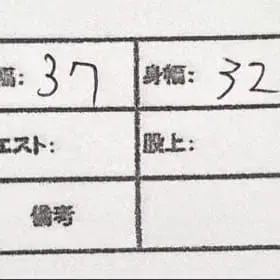 幅: 37 身幅: 32
エスト: 股上:
備考